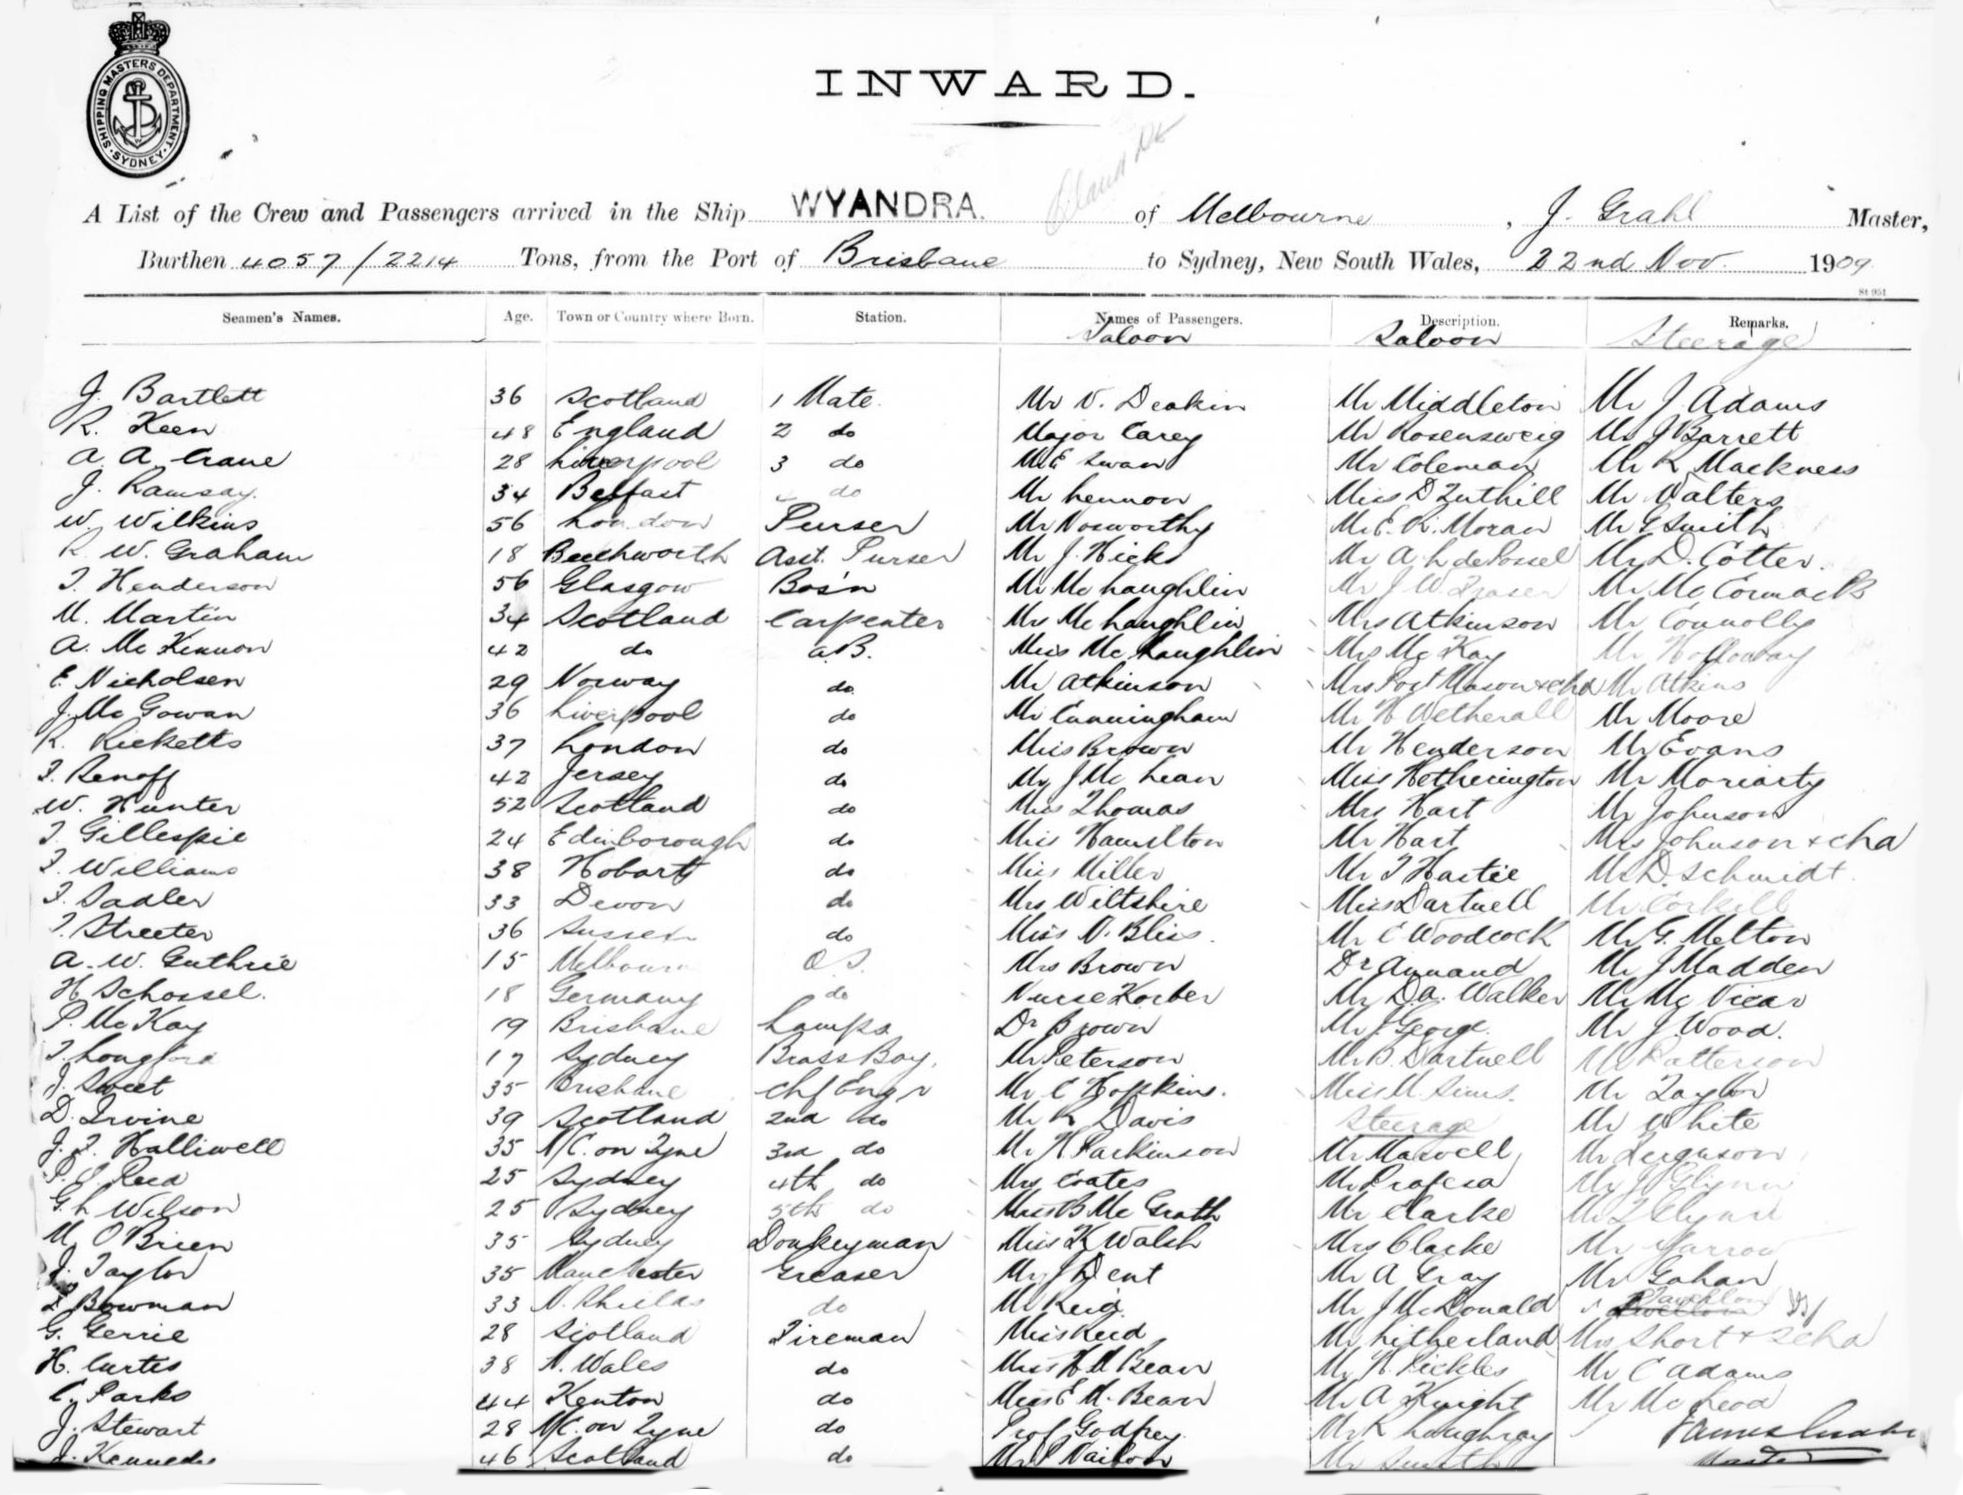 SHIPPING MASTERS DEPARTMENT. SYDNEY.
INWARD.
A List of the Crew and Passengers arrived in the Ship WYANDRA. of Melbourne, J. Grahl Master,
Burthen 4057/2214 Tons, from the Port of Brisbane to Sydney, New South Wales, 22nd Nov. 1909
St 951
Seamen's Names. Age. Town or Country where Born. Station. Names of Passengers. Description. Remarks.
Saloon Saloon Steerage
J. Bartlett 36 Scotland 1 Mate. Mr V. Deakin Mr Middleton Mr J. Adams
R. Keen 48 England 2 do Major Carey Mr Rosensweig Mr J Barrett
A. A. Crane 28 Liverpool 3 do Mr E Swan Mr Coleman Mr R Mackness
J. Ramsay. 34 Belfast do Mr Lennon Miss D Tuthill Mr Walters
W. Wilkins 56 London Purser Mr Nosworthy Mr E. R. Moran Mr G Smith
R. W. Graham 18 Beechworth Asst. Purser Mr J. Hicks Mr A L de Possel Mr D. Cotter.
T. Henderson 56 Glasgow Bos'n Mr McLaughlin Mr J W Fraser Mr McCormack
M. Martin 34 Scotland Carpenter Mrs McLaughlin Mrs Atkinson Mr Connolly
A. McKinnon 42 do A.B. Miss McLaughlin Mrs McKay Mr Holloway
E. Nicholsen 29 Norway do Mr Atkinson Mrs Post Mason & chd Mr Atkins
J. McGowan 36 Liverpool do Mr Cunningham Mr H Wetherall Mr Moore
R. Ricketts 37 London do Miss Brown Mr Henderson Mr Evans
F. Renoff 42 Jersey do Mr J McLean Miss Hetherington Mr Moriarty
W. Hunter 52 Scotland do Miss Thomas Mrs Hart Mr Johnson
T. Gillespie 24 Edinborough do Miss Hamilton Mr Hart Mrs Johnson & chd
T. Williams 38 Hobart do Miss Miller Mr T Hastie Mr D. Schmidt.
F. Sadler 33 Devon do Mrs Wiltshire Miss Dartnell Mr Corkill
T. Streeter 36 Sussex do Miss N. Bliss. Mr C Woodcock Mr G. Melton
A. W. Guthrie 15 Melbourn O.S. Mrs Brown Dr Annand Mr J Madden
H Schossel. 18 Germany do Nurse Korber Mr D. A. Walker Mr McVicar
P. McKay 19 Brisbane Lamps Dr Brown Mr J. George. Mr J Wood.
T. Longford 17 Sydney Brass Boy. Mr Peterson Mr B. Dartnell Mr Patterson
J. Sweet 35 Brisbane Chf Engr Mr C Hopkins. Miss M. Sims. Mr Taylor
D. Irvine 39 Scotland 2nd do Mr R Davis Steerage Mr White
J. T. Halliwell 35 N/C. on Tyne 3rd do Mr H Parkinson Mr Maxwell Mr Ferguson
P. J Reed 25 Sydney 4th do Mrs Coates Mr Profesa Mr J Glynn
G. L Wilson 25 Sydney 5th do Miss B McGrath Mr Clarke Mr T Glynn
M. O'Brien 35 Sydney Donkeyman Miss K Walsh Mrs Clarke Mr Yarrow
J. Taylor 35 Manchester Greaser Mr J Dent Mr A Gray Mr Gahan
Bowman 33 N. Shields do Mr Reid Mr J McDonald
G. Gerrie 28 Scotland Fireman Miss Reid Mr Litherland Mrs Short & 2 chd
H. Curtis 38 N. Wales do Miss H M Bean Mr H. Pickles Mr C Adams
C. Parks 44 Kenton do Miss E. M. Bean Mr A Knight Mr McLeod
J. Stewart 28 N/C. on Tyne do Prof Godfrey Mr R Loughray
J. Kennedy 46 Scotland do Mr P Nailon Mr Smith Master